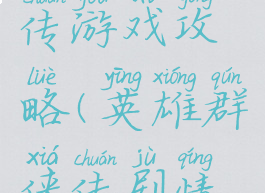 chuán yóu xì gōng
传游戏攻
lüè yīng xióng qún
略(英雄群
xiá chuán jù qíng
侠传剧情